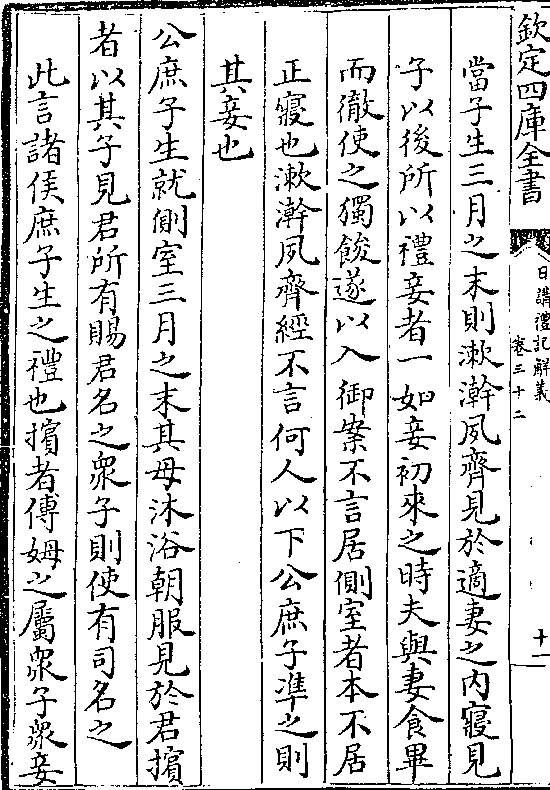 欽定四庫全書
日講禮記解義
卷三十二
十一
當子生三月之末則漱澣夙齊見於適妻之內寢見
子以後所以禮妾者一如妾初來之時夫與妻食畢
而徹使之獨餕遂以入御案不言居側室者本不居
正寢也漱澣夙齊經不言何人以下公庶子凖之則
其妾也
公庶子生就側室三月之末其母沐浴朝服見於君擯
者以其子見君所有賜君名之衆子則使有司名之
此言諸侯庶子生之禮也擯者傅姆之屬衆子衆妾